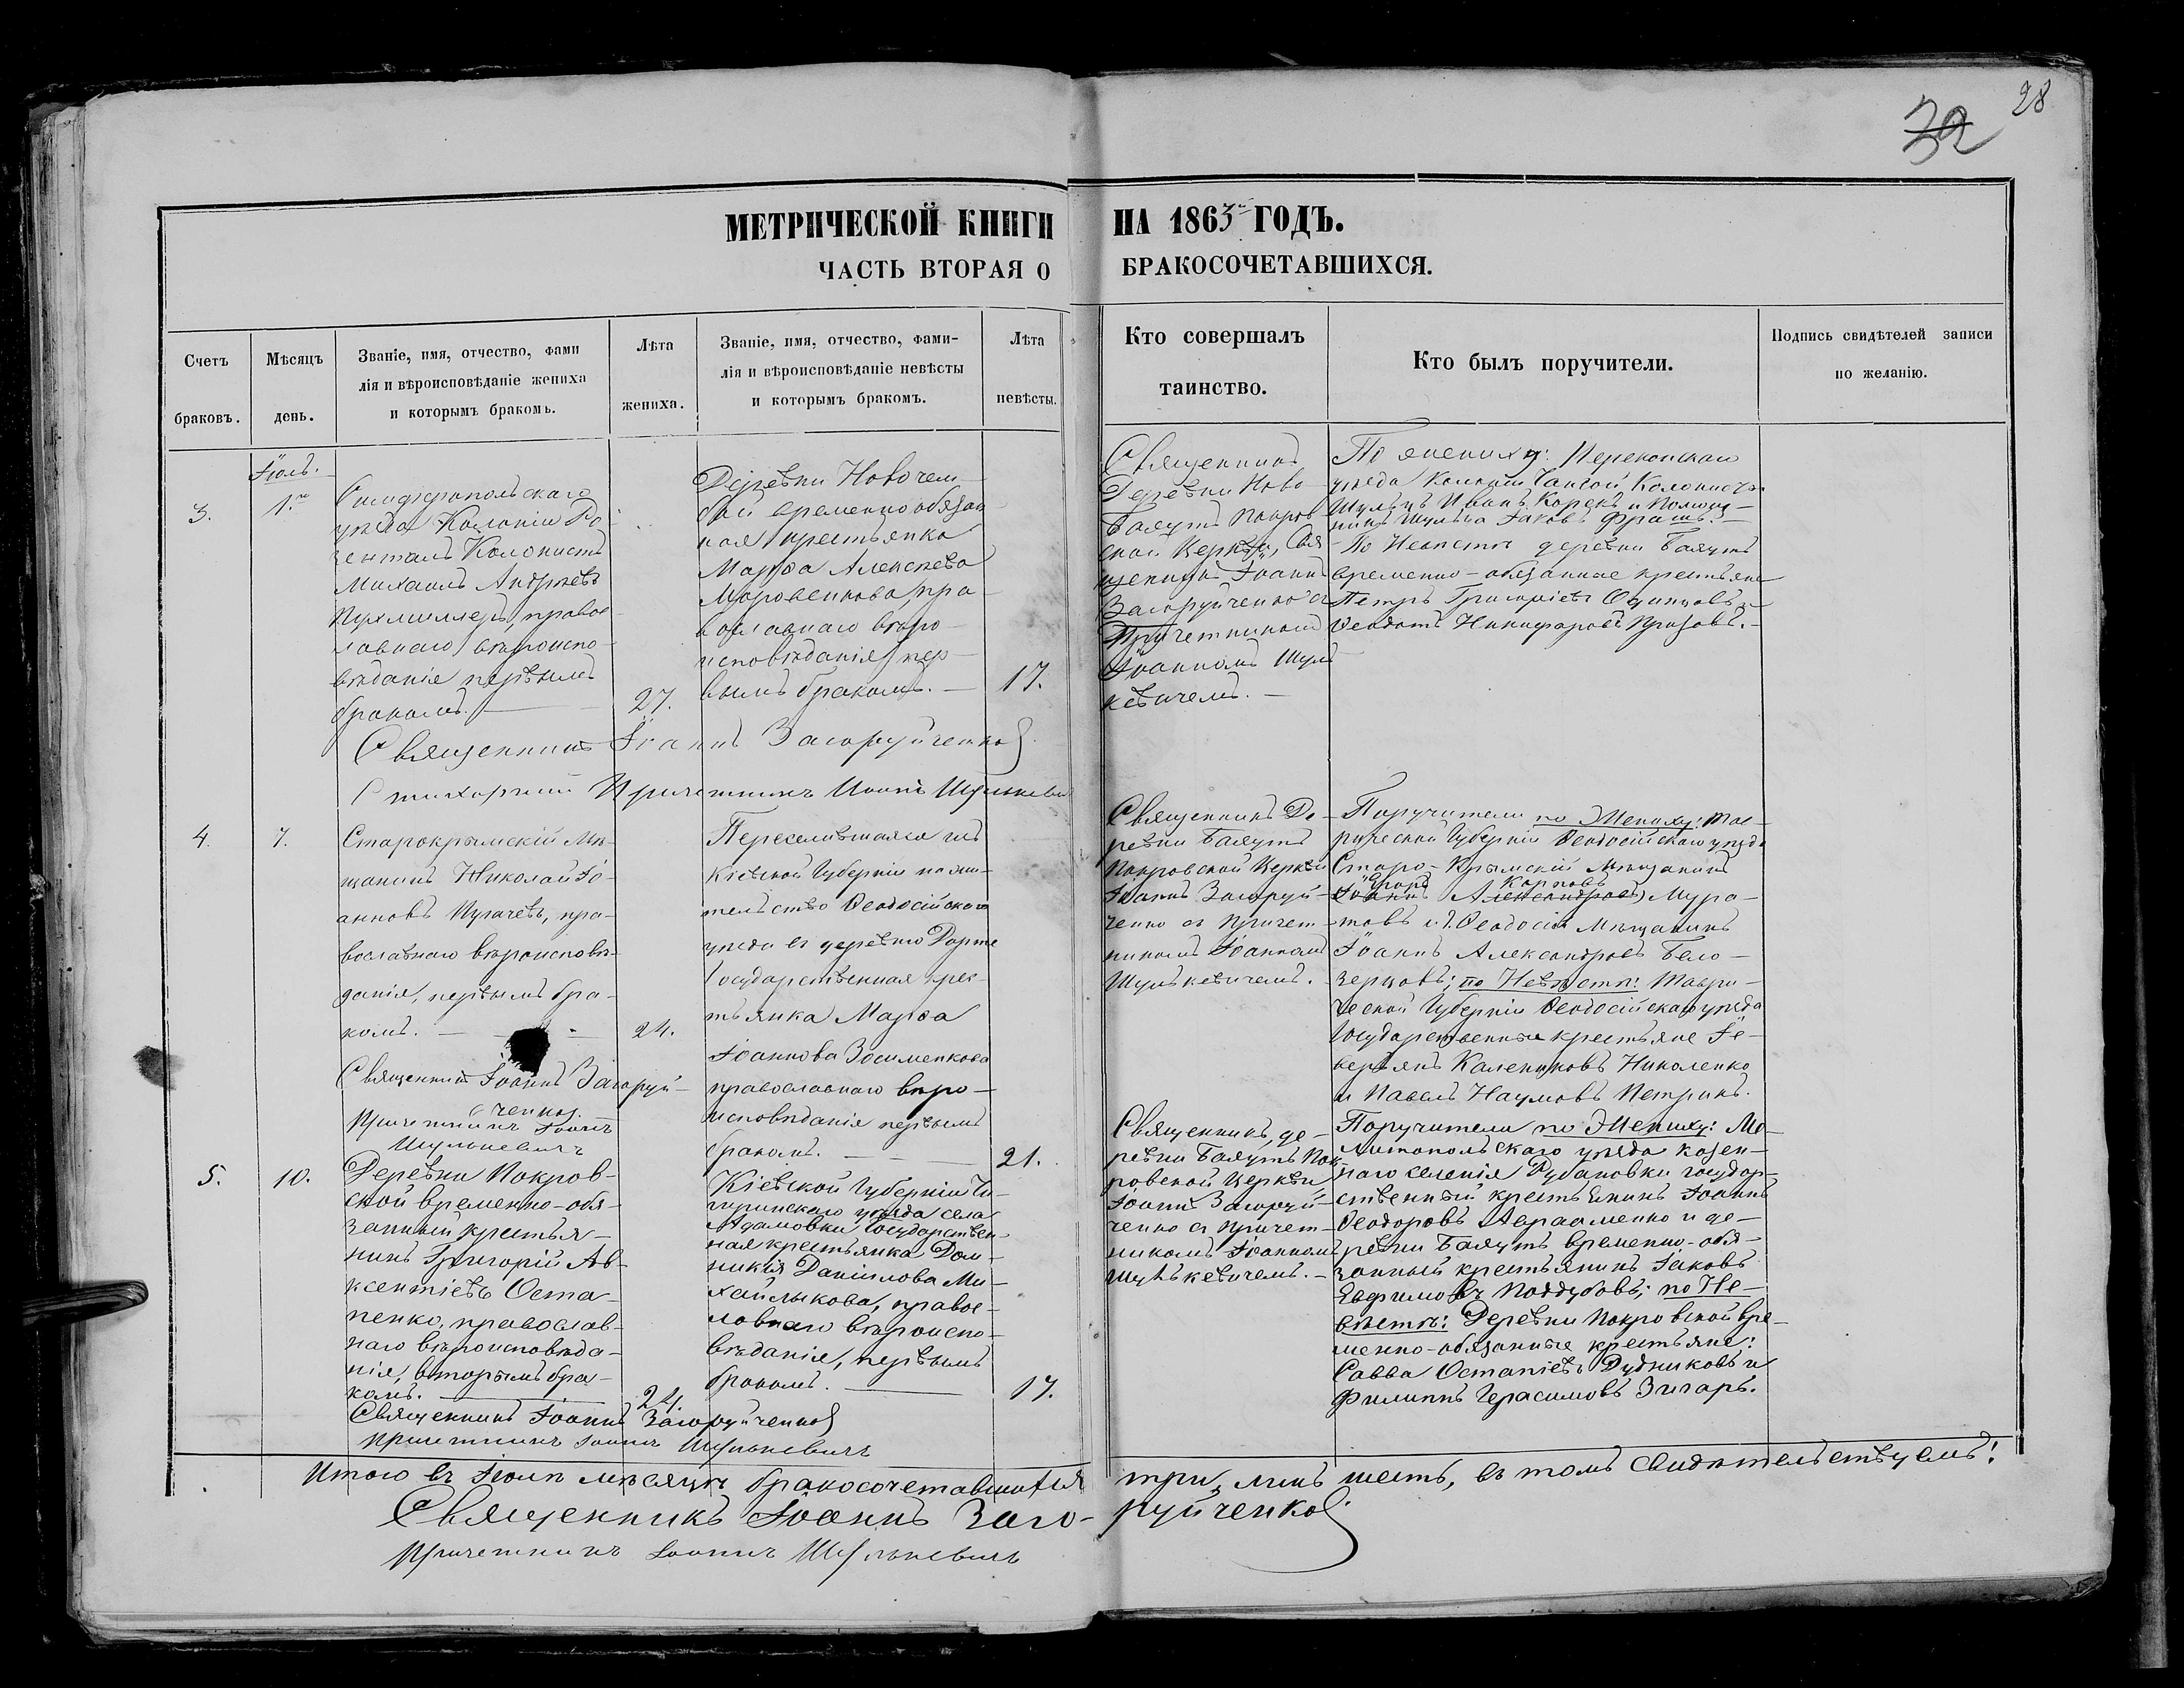 28
32
МЕТРИЧЕСКОЙ КНИГИ НА 1863й ГОДЪ.
ЧАСТЬ ВТОРАЯ О БРАКОСОЧЕТАВШИХСЯ.
Счетъ браковъ.
Мѣсяцъ день.
Званіе, имя, отчество, фами
лія и вѣроисповѣданіе жениха
и которымъ бракомъ.
Лѣта жениха.
Званіе, имя, отчество, фами-
лія и вѣроисповѣданіе невѣсты
и которымъ бракомъ.
Лѣта невѣсты.
Кто совершалъ
таинство.
Кто былъ поручители.
Подпись свидѣтелей записи
по желанію.
Іюль.
3.
1го
Симферопольскаго
уѣзда Колоніи Ро-
зенталь Колонистъ
Михаилъ Андреевъ
правос-
лавнаго вѣроиспо-
вѣданіе первымъ
бракомъ.
27.
Деревни
бай временнообязан
ная крестьянка
Марфа Алексѣева
пра-
вославнаго вѣро-
исповѣданія, пер-
вымъ бракомъ. —
17.
Священникъ
Деревни Ново
Баяутъ Покров
ской Церкви, Свя
щенникъ Іоаннъ
Загоруйченко съ
Причетникомъ
Іоанномъ Шуль
кевичемъ. —
По жениху: Перекопскаго
уѣзда Колоніи Колонисты
Шульцъ Иванъ и Помощ-
никъ Шульца Яковъ
По Невѣстѣ деревни Баяутъ
временно-обязанные крестьяне
Петръ Григоріевъ Одинцовъ и
Ѳеодотъ Никифоровъ
Священникъ Іоаннъ Загоруйченко
Стихарный Причетникъ Іоаннъ Шулькевичъ
4.
7.
Старокрымскій Мѣ-
щанинъ Николай Іо-
анновъ Пугачевъ, пра-
вославнаго вѣроисповѣ-
данія, первымъ бра-
комъ. —
24.
Переселившаяся изъ
Кіевской Губерніи на жи-
тельство Ѳеодосійскаго
уѣзда въ деревню Дорте
Государственная крес-
тьянка Марфа
Іоаннова Зосименкова
православнаго вѣро-
исповѣданія первымъ
бракомъ. —
21.
Священникъ Де-
ревни Баяутъ
Покровской Церкви
Іоаннъ Загоруй-
ченко съ Причет-
никомъ Іоанномъ
Шулькевичемъ.
Поручители по Жениху: Тав-
рической Губерніи Ѳеодосійскаго уѣзда
Старо-Крымскій Мѣщанинъ
Карповъ
Іоаннъ Александровъ Мура-
товъ и г. Ѳеодосіи Мѣщанинъ
Іоаннъ Александровъ Бело-
зерцовъ; по Невѣстѣ: Таври-
ческой Губерніи Ѳеодосійскаго уѣзда
Государственные крестьяне Іе-
Калениковъ Николенко
и Павелъ Наумовъ Петринъ.
Священникъ Іоаннъ Загоруй-
ченко.
Причетникъ Іоаннъ
Шулькевичъ
5.
10.
Деревни Покров-
ской временно-обя-
занный крестья-
нинъ Григорій Ав-
ксентіевъ Оста-
пенко, православ-
наго вѣроисповѣда-
нія, вторымъ бра-
комъ.
24.
Кіевской Губерніи Чи-
гиринскаго уѣзда села
Адамовки Государствен-
ная крестьянка Дом-
никія Даніилова Ми-
хайлыкова, правос-
лавнаго вѣроиспо-
вѣданія, первымъ
бракомъ.
17.
Священникъ де-
ревни Баяутъ Пок-
ровской Церкви
Іоаннъ Загоруй-
ченко съ Причет-
никомъ Іоанномъ
Шулькевичемъ. —
Поручители по Жениху: Ме-
литопольскаго уѣзда казен-
наго селенія Рубановки государ-
ственный крестьянинъ Іоаннъ
Ѳеодоровъ Авраменко и де-
ревни Баяутъ временно-обя-
занный крестьянинъ Іаковъ
Евфимовъ Поддубовъ; по Не-
вѣстѣ: Деревни Покровской вре-
менно-обязанные крестьяне:
Савва Остапіевъ Дудниковъ и
Филиппъ Герасимовъ Зигарь.
Священникъ Іоаннъ Загоруйченко
Причетникъ Іоаннъ Шулькевичъ
Итого въ Іюлѣ мѣсяцѣ бракосочетавшихся три, лицъ шесть, въ томъ свидѣтельствуемъ:
Священникъ Іоаннъ Заго-руйченко
Причетникъ Іоаннъ Шулькевичъ